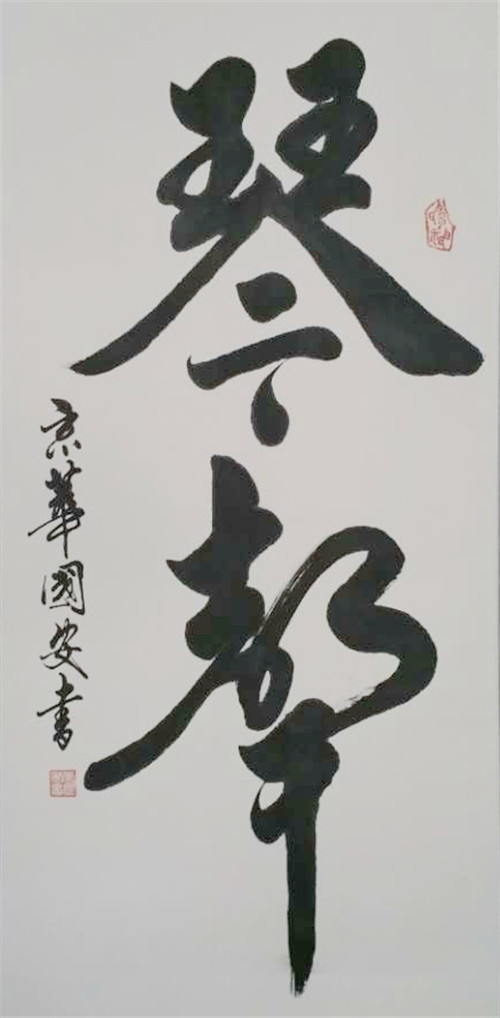 琴聲
京華國安書